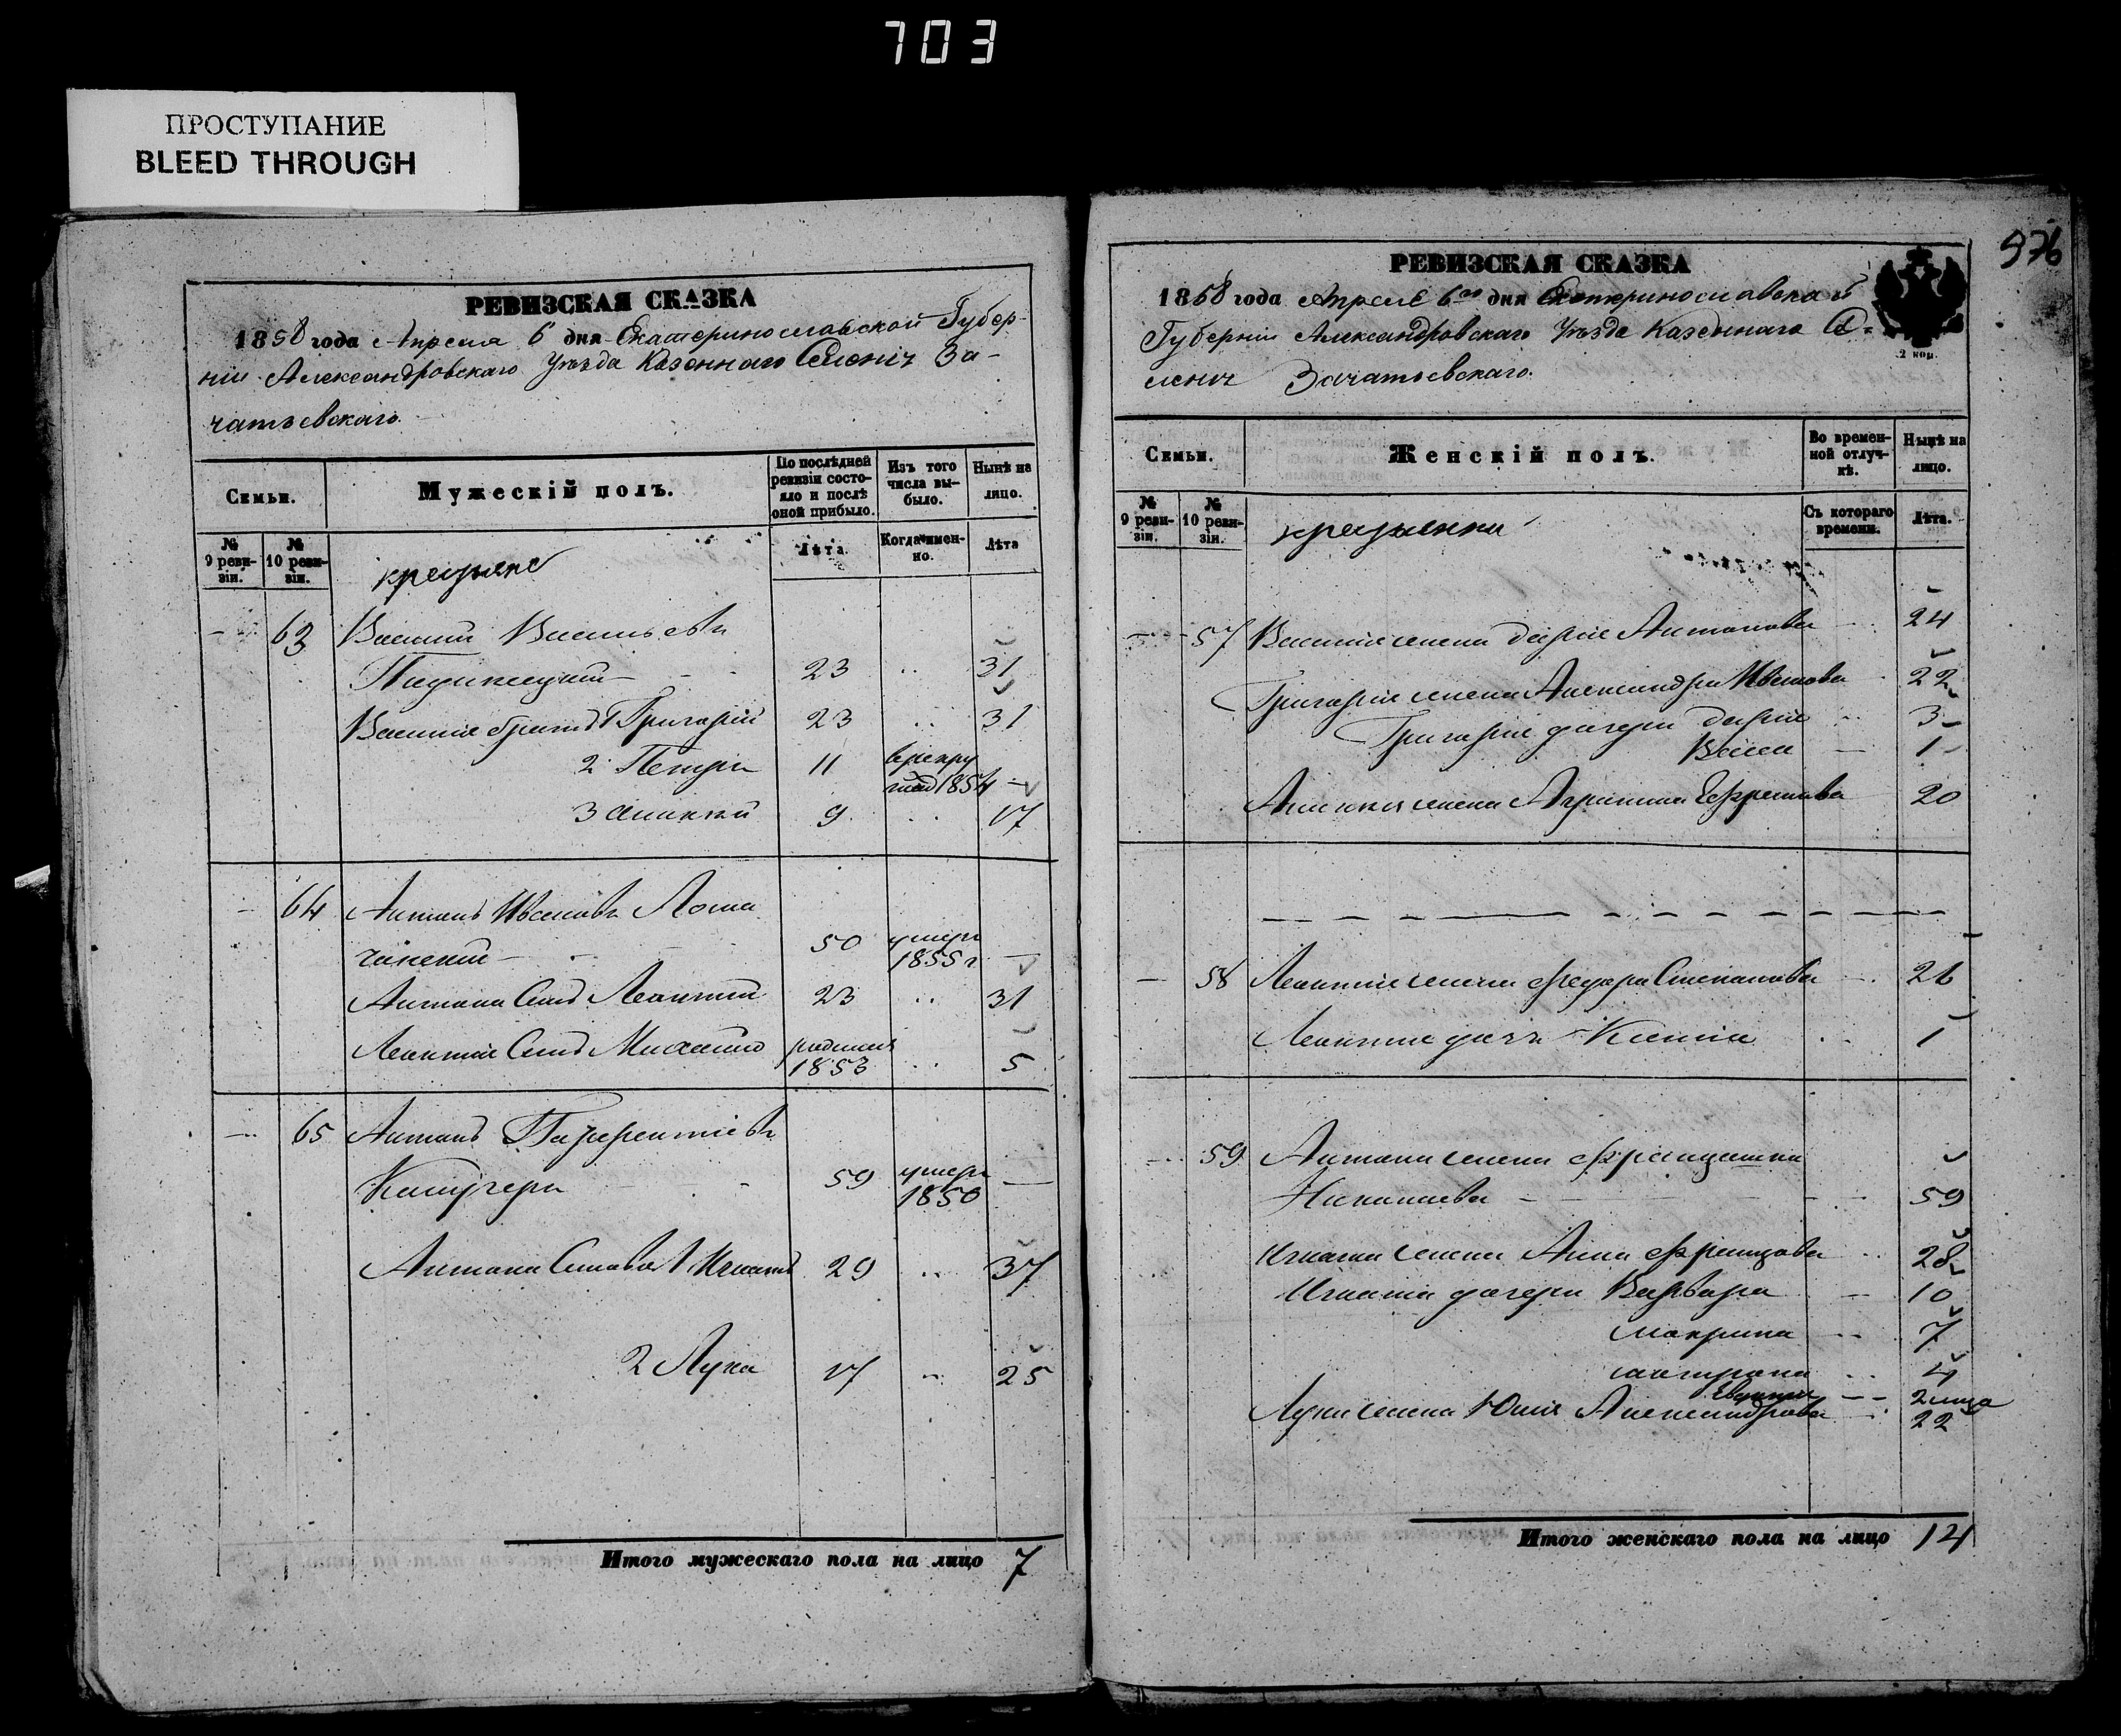 703
ПРОСТУПАНИЕ
BLEED THROUGH
РЕВИЗСКАЯ СКАЗКА
1858 года Апреля 6 дня Екатеринославской Губер-
нии Александровскаго Уезда Казеннаго Селенія За-
чатьевскаго.
Семьи.
Мужескій полъ.
По послѣдней ревизіи состо-яло и послѣ оной прибыло.
Изъ того числа вы-было.
Нынѣ на лицо.
№ 9 реви-зіи.
№ 10 реви-зіи.
крестьяне
Лѣта.
Когда имен-но.
Лѣта
63 Василий Васильевъ
23 31
Василия братъ 1 Григорий 23 31
2 Петръ 11 в рекру
1854
3 9 17
64 Антонъ Ивановъ
50 умеръ
1855 г
Антона Сынъ Леонтий 23 31
Леонтия Сынъ Михайло родился
1853 5
65 Антонъ
59 умеръ
1850
Антона Сыновья 1 Игнатъ 29 37
2 Лука 17 25
Итого мужескаго пола на лицо 7
976
РЕВИЗСКАЯ СКАЗКА
1858 года Апреля 6го дня Екатеринославской
Губерніи Александровскаго Уезда Казеннаго Се-
ленія Зачатьевскаго.
2 коп.
Семьи.
Женскій полъ.
Во времен-ной отлуч-кѣ.
Нынѣ на лицо.
№ 9 реви-зіи.
№ 10 реви-зіи.
крестьянки
Съ котораго времени.
Лѣта.
57 Василия жена Дария Антонова 24
Григория жена Александра Иванова 22
Григория дочери Дария 3
1
жена Ефремова 20
58 Леонтия жена Федора Степанова 26
Леонтия дочь Ксения 1
59 Антона жена
Николаева 59
Игната жена Анна 28
Игната дочери Варвара 10
Макрина 7
4
2
Луки жена Юлия Александрова 22
Итого женскаго пола на лицо 12